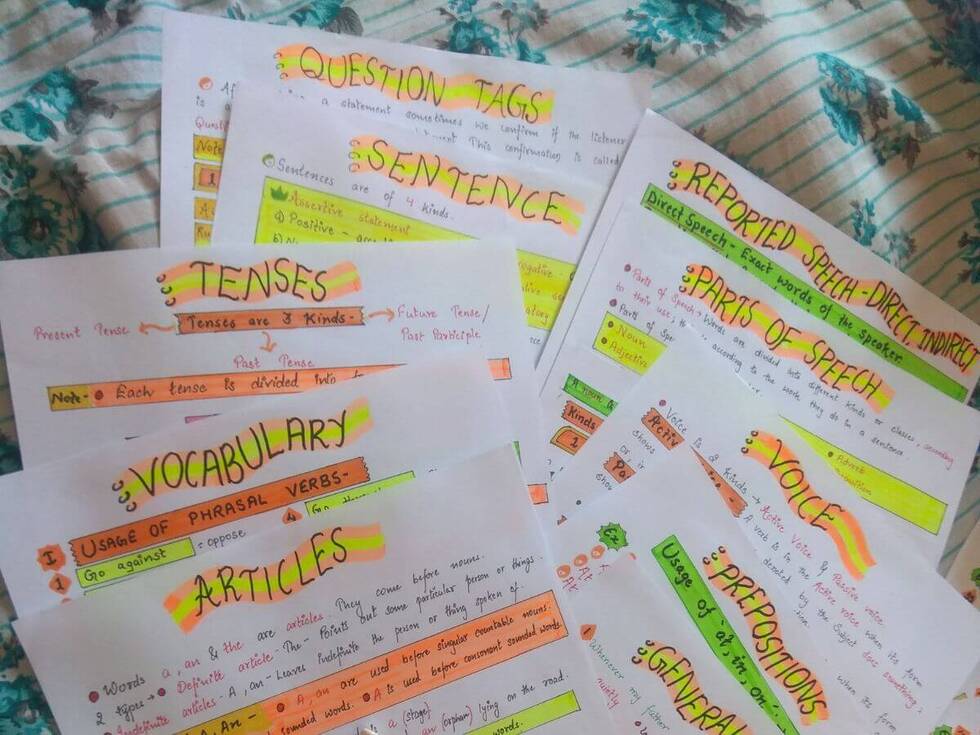 QUESTION TAGS
a statement sometimes we confirm if the listener
is
This confirmation is called
Questi
Note
1
SENTENCE
Sentences are of 4 kinds.
Assertive statement
a) Positive -
REPORTED SPEECH - DIRECT, INDIRECT
Direct Speech - Exact words of the speaker
PARTS OF SPEECH
Parts of Speech → Words are divided into different kinds or classes, according
to their use; according to the work they do in a sentence.
Parts of Spe
Noun
Adjective
Adverb
A noun
Kinds
1
TENSES
Tenses are 3 Kinds -
Present Tense
Future Tense/
Past Participle
Past Tense
Note - Each tense is divided into
VOCABULARY
I USAGE OF PHRASAL VERBS -
1 Go against = oppose
4
VOICE
Voice is 2 kinds → Active Voice & Passive voice.
Activ
A verb is in the Active voice when its form
shows
denoted by the Subject does something;
Pa
Or, i
when its form
shows
PREPOSITIONS
Usage of 'at, in, on'
Ex
At
At
GENERAL
Whenever my
father
quietly
ARTICLES
Words a, an & the are articles. They come before nouns.
2 types → Definite article - The - Points out some particular person or things
Indefinite articles - A, an - Leaves indefinite the person or thing spoken of.
A, An - A, an are used before singular countable nouns.
sounded words. A is used before consonant sounded words.
a (stage)
an (orphan) lying on the road.
words.